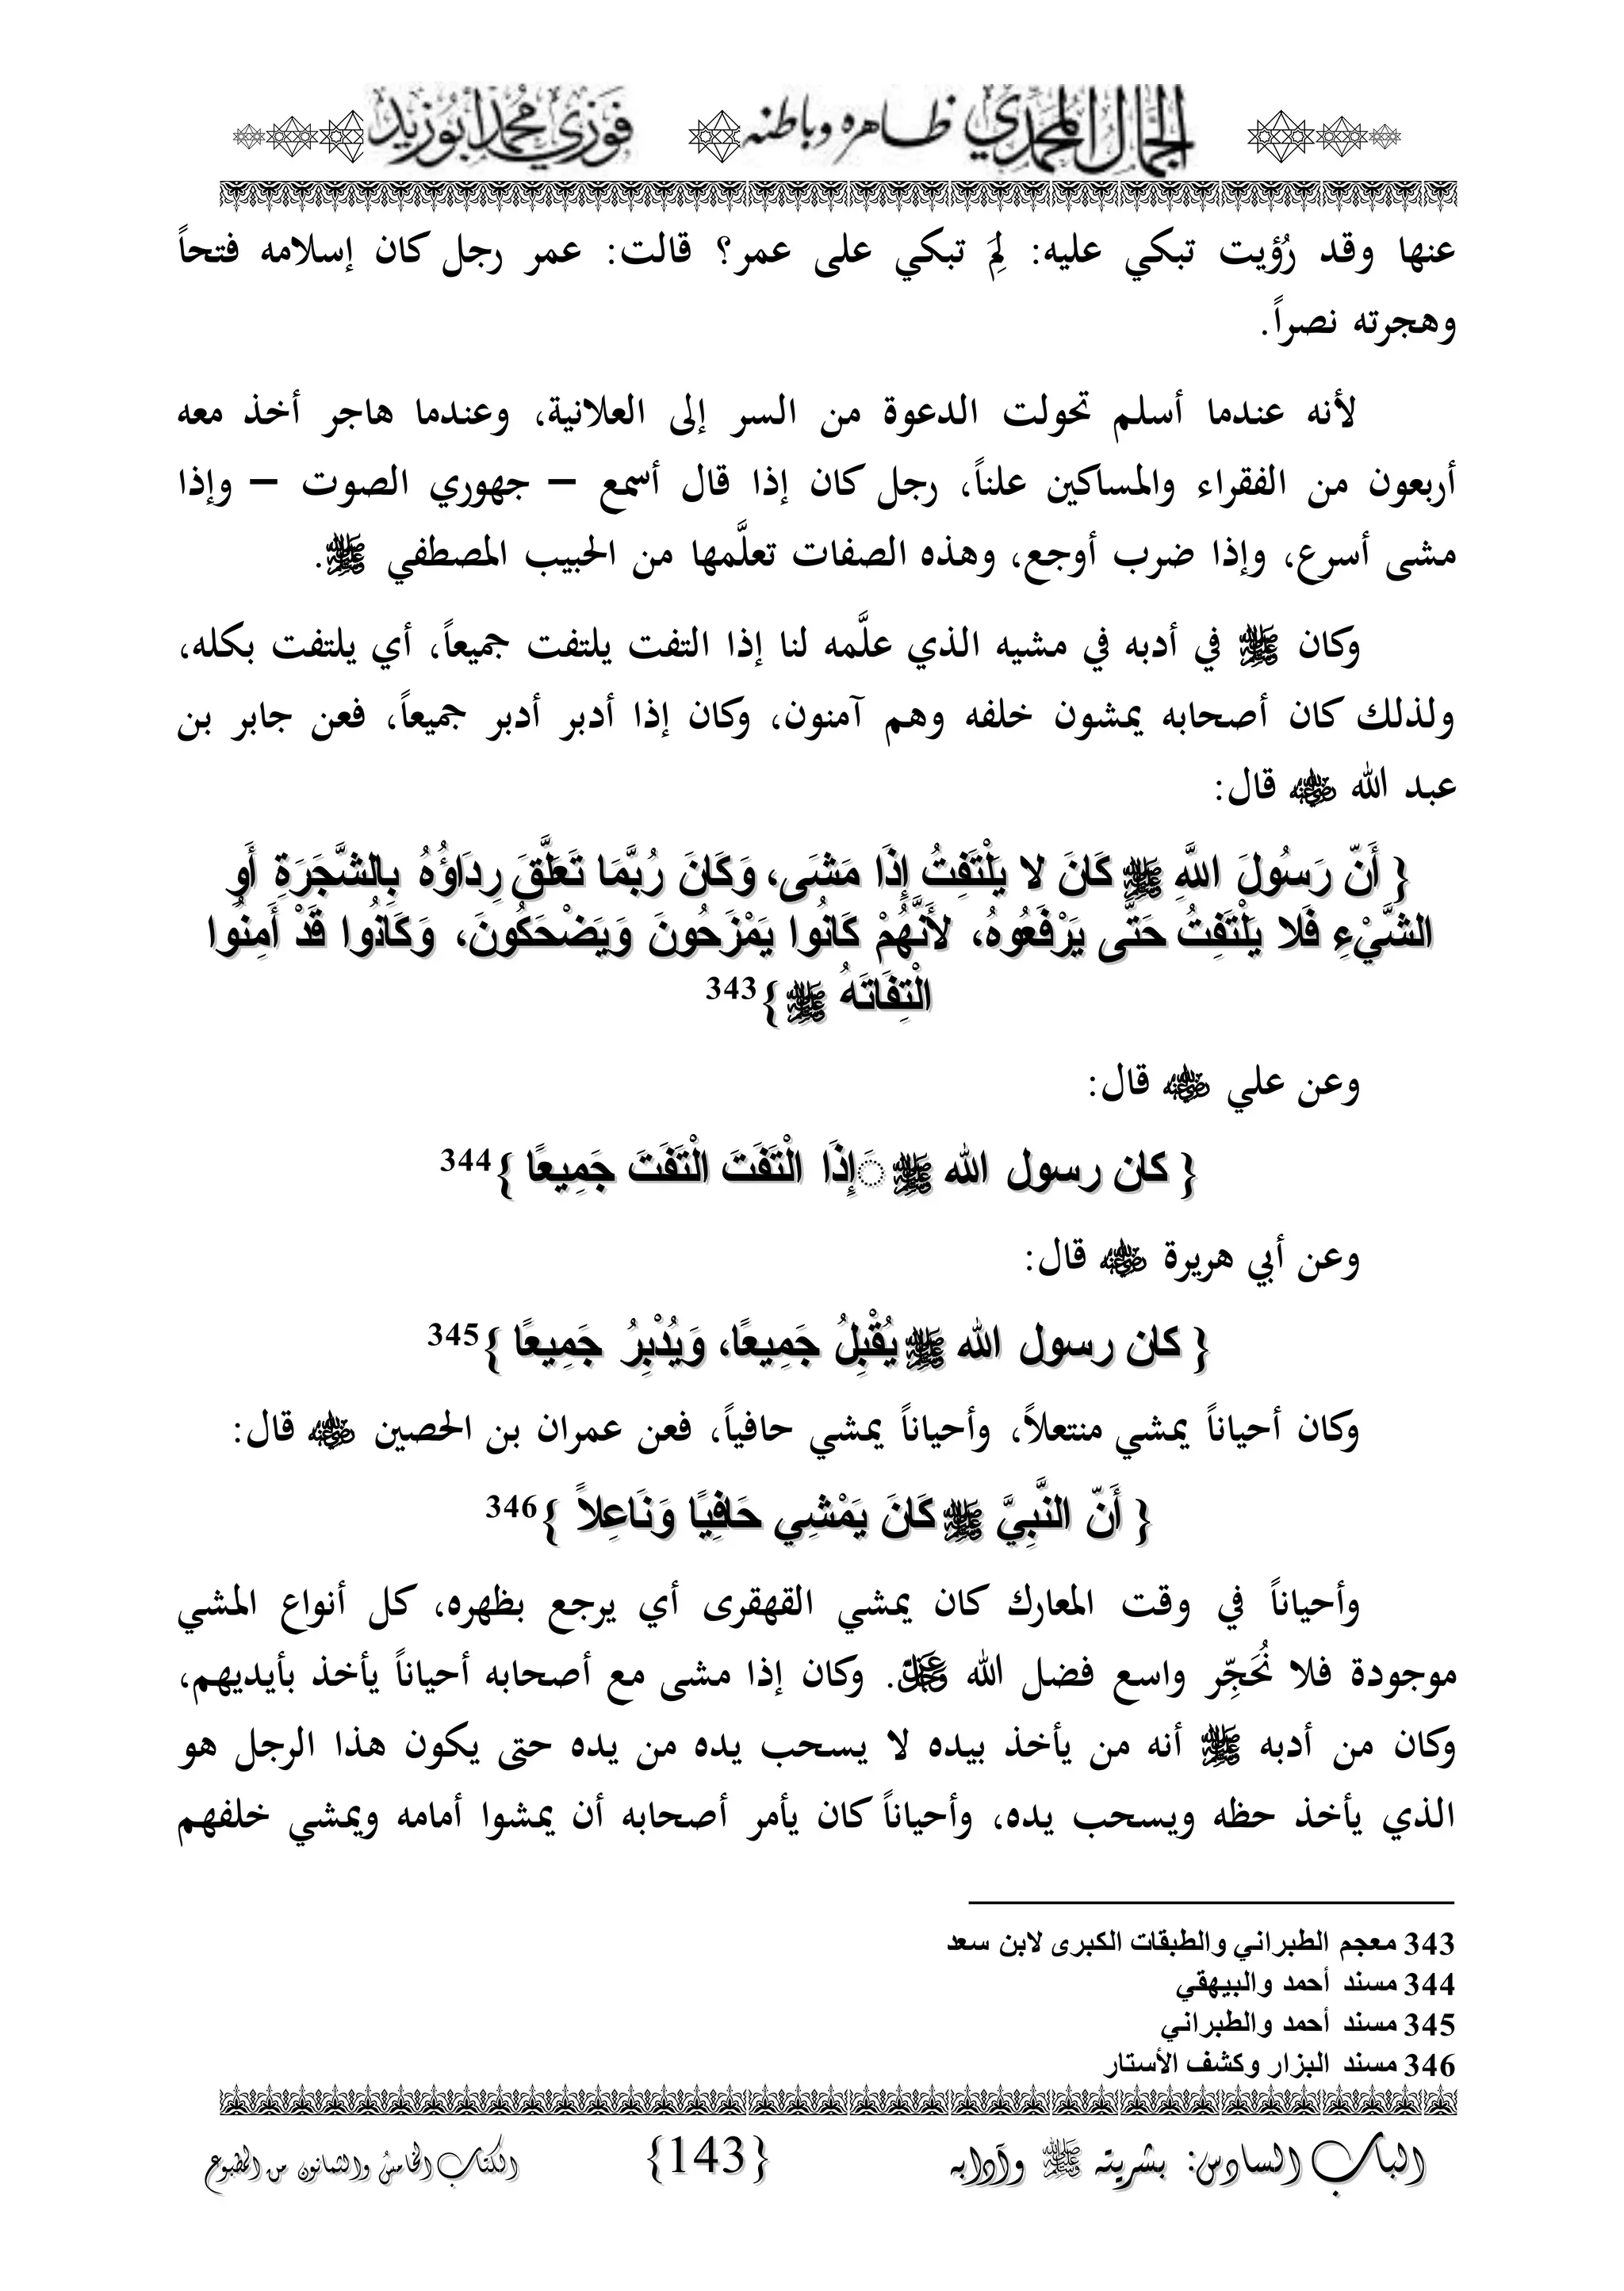 الجمال المحمدي ظاهره وباطنه فوزي محمد أبوزيد
عنها وقد رُؤيت تبكي عليه: لِمَ تبكي على عمر؟ قالت: عمر رجل كان إسلامه فتحاً
وهجرته نصراً.
لأنه عندما أسلم تحولت الدعوة من السر إلى العلانية، وعندما هاجر أخذ معه
أربعون من الفقراء والمساكين علناً، رجل كان إذا قال أسمع – جهوري الصوت – وإذا
مشى أسرع، وإذا ضرب أوجع، وهذه الصفات تعلَّمها من الحبيب المصطفي ﷺ.
وكان ﷺ في أدبه في مشيه الذي علَّمه لنا إذا التفت يلتفت جميعاً، أي يلتفت بكله،
ولذلك كان أصحابه يمشون خلفه وهم آمنون، وكان إذا أدبر أدبر جميعاً، فعن جابر بن
عبد الله رضي الله عنه قال:
{ أَنّ رَسُولَ اللَّهِ ﷺ كَانَ لا يَلْتَفِتُ إِذَا مَشَى، وَكَانَ رُبَّمَا تَعَلَّقَ رِدَاؤُهُ بِالشَّجَرَةِ أَوِ
الشَّيْءِ فَلا يَلْتَفِتُ حَتَّى يَرْفَعُوهُ، لأَنَّهُمْ كَانُوا يَمْزَحُونَ وَيَضْحَكُونَ، وَكَانُوا قَدْ أَمِنُوا
الْتِفَاتَهُ ﷺ }343
وعن علي رضي الله عنه قال:
{ كان رسول الله ﷺ َإِذَا الْتَفَتَ الْتَفَتَ جَمِيعًا }344
وعن أبي هريرة رضي الله عنه قال:
{ كان رسول الله ﷺ يُقْبِلُ جَمِيعًا، وَيُدْبِرُ جَمِيعًا }345
وكان أحياناً يمشي منتعلاً، وأحياناً يمشي حافياً، فعن عمران بن الحصين رضي الله عنه قال:
{ أَنّ النَّبِيَّ ﷺ كَانَ يَمْشِي حَافِيًا وَنَاعِلاً }346
وأحياناً في وقت المعارك كان يمشي القهقرى أي يرجع بظهره، كل أنواع المشي
موجودة فلا نُحَجِّر واسع فضل الله عز وجل. وكان إذا مشى مع أصحابه أحياناً يأخذ بأيديهم،
وكان من أدبه ﷺ أنه من يأخذ بيده لا يسحب يده من يده حتى يكون هذا الرجل هو
الذي يأخذ حظه ويسحب يده، وأحياناً كان يأمر أصحابه أن يمشوا أمامه ويمشي خلفهم
343 معجم الطبراني والطبقات الكبرى لابن سعد
344 مسند أحمد والبيهقي
345 مسند أحمد والطبراني
346 مسند البزار وكشف الأستار
الباب السادس: بشريته ﷺ وآدابه {143} الكتاب الخامس والثمانون من المطبوع